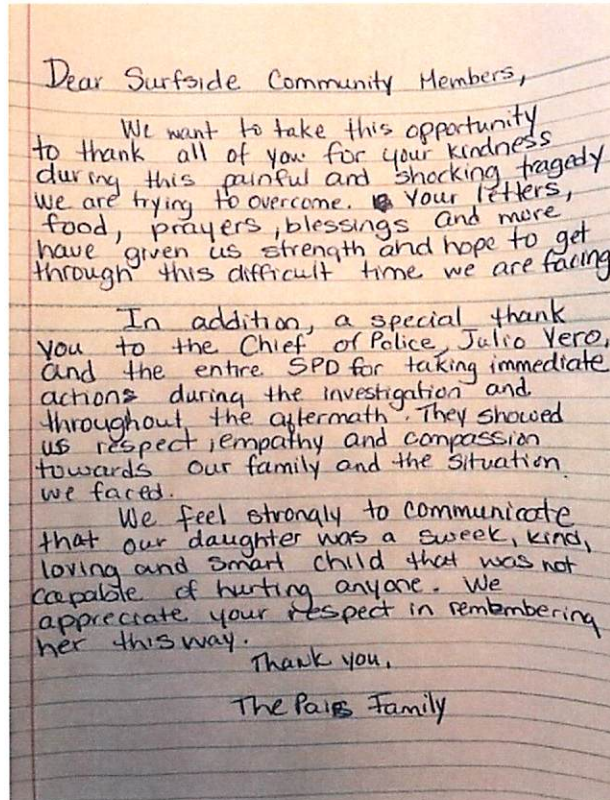 Dear Surfside Community Members,
We want to take this opportunity
to thank all of you for your kindness
during this painful and shocking tragedy
we are trying to overcome. Your letters,
food, prayers, blessings and more
have given us strength and hope to get
through this difficult time we are facing
In addition, a special thank
you to the Chief of Police, Julio Yero,
and the entire SPD for taking immediate
actions during the investigation and
throughout the aftermath. They showed
us respect, empathy and compassion
towards our family and the situation
we faced.
We feel strongly to communicate
that our daughter was a sweek, kind,
loving and smart child that was not
capable of hurting anyone. We
appreciate your respect in remembering
her this way.
Thank you,
The Family